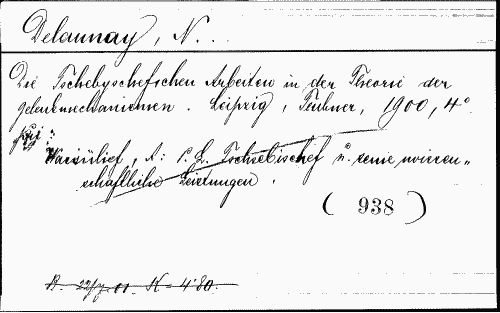 Delaunay, N...
Die Tschebyschefschen Arbeiten in der Theorie der
Gelenkmechanismen. Leipzig, Teubner, 1900, 4°
Wassilief, A: P. L. Tschebischef u. seine wissen„
schaftliche Leistungen.
( 938 )
B. 22/7 01 M = 4·80.